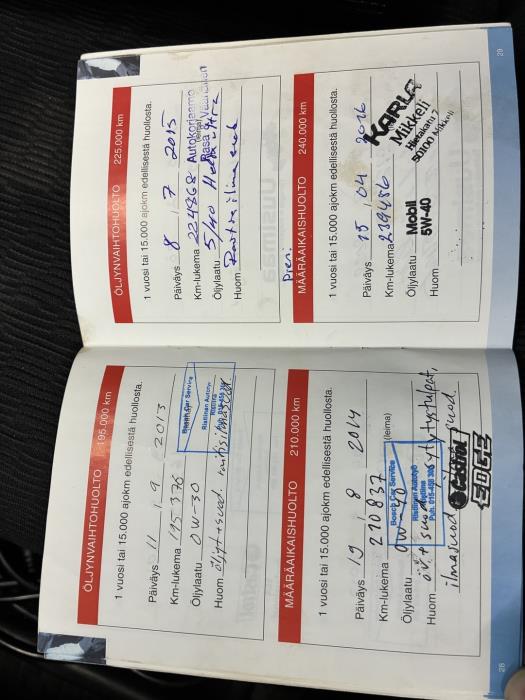 ÖLJYNVAIHTOHUOLTO 195.000 km
1 vuosi tai 15.000 ajokm edellisestä huollosta.
Päiväys 11 / 9 2013
Km-lukema 195376
Bosch Car Service
Öljylaatu 0W-30
Ristiinan Autotyö
Huom. öljyt+suod.
MÄÄRÄAIKAISHUOLTO 210.000 km
1 vuosi tai 15.000 ajokm edellisestä huollosta.
Päiväys 19 / 8 2014
Km-lukema 210837 (leima)
Bosch Car Service
Öljylaatu 0W
Ristiinan Autotyö
Huom öv,+suod
ilmasuod
Castrol
EDGE
28
ÖLJYNVAIHTOHUOLTO 225.000 km
1 vuosi tai 15.000 ajokm edellisestä huollosta.
Päiväys 8 / 7 2015
Km-lukema 224868 Autokorjaamo
Öljylaatu 5/40
Huom.
Pieni
MÄÄRÄAIKAISHUOLTO 240.000 km
1 vuosi tai 15.000 ajokm edellisestä huollosta.
Päiväys 15 / 04 2016
Km-lukema 239486
KARLA
Mikkeli
50100 Mikkeli
Öljylaatu Mobil
5W-40
Huom
29